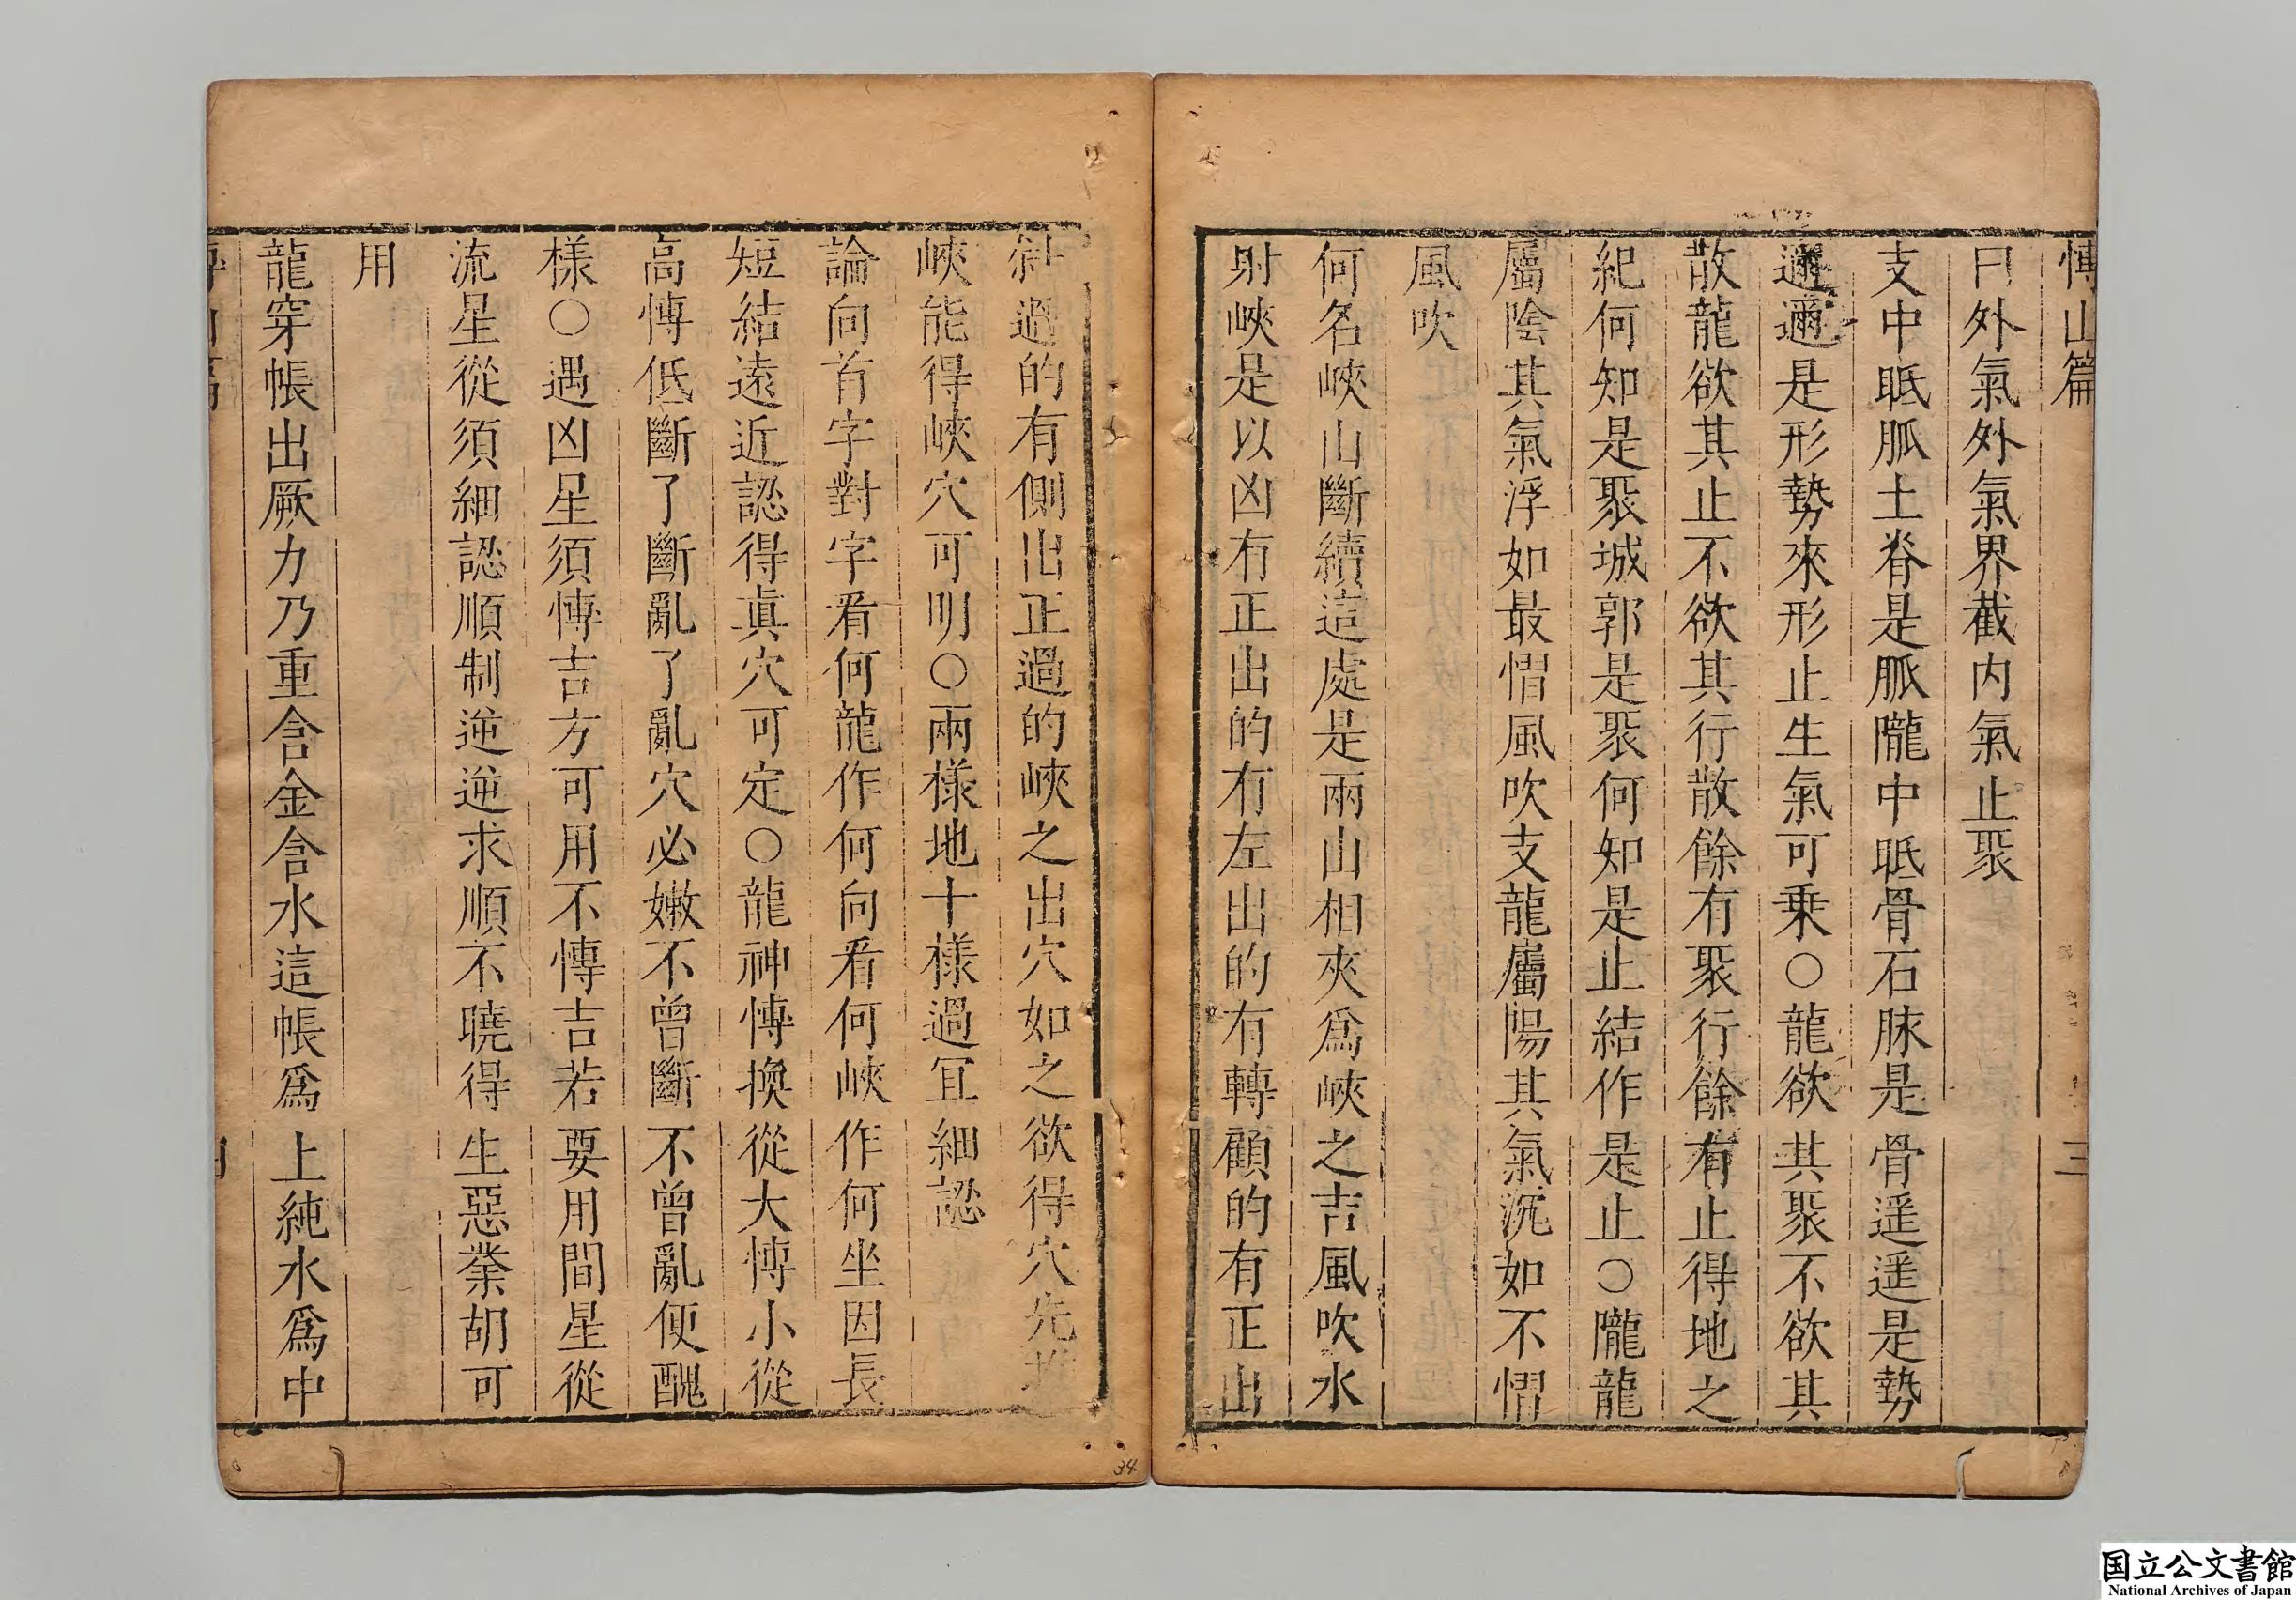 愽山篇
三
曰外氣外氣界截内氣止聚
支中眂胍土脊是脈隴中眂骨石脉是骨遥遥是勢
邇邇是形勢來形止生氣可乗○龍欲其聚不欲其
散龍欲其止不欲其行散餘有聚行餘有止得地之
紀何知是聚城郭是聚何知是止結作是止○隴龍
屬陰其氣浮如最慴風吹支龍屬陽其氣沉如不慴
風吹
何名峽山斷續這處是兩山相夾爲峽之吉風吹水
射峽是以凶有正出的有左出的有轉顧的有正出
斜過的有側出正過的峽之出穴如之欲得穴先
峽能得峽穴可明○兩樣地十樣過冝細認
論向首字對字看何龍作何向看何峽作何坐因長
短結遠近認得眞穴可定○龍神愽換從大愽小從
高愽低斷了斷亂了亂穴必嫩不曾斷不曾亂便醜
樣○遇凶星須愽吉方可用不愽吉若要用間星從
流星從須細認順制逆逆求順不曉得生惡業胡可
用
龍穿帳出厥力乃重含金含水這帳爲上純水爲中
国立公文書館
National Archives of Japan
34